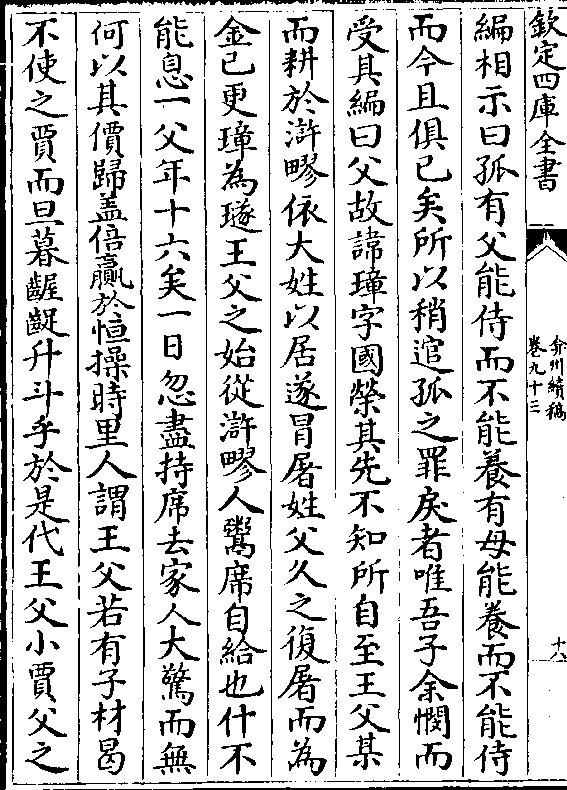 欽定四庫全書
弇州續稿
卷九十三
十八
編相示曰孤有父能侍而不能養有母能養而不能侍
而今且俱已矣所以稍逭孤之罪戾者唯吾子余憫而
受其編曰父故諱璋字國榮其先不知所自至王父某
而耕於滸瞜依大姓以居遂冒屠姓父久之復屠而為
金已更璋為璲王父之始從滸瞜人鬻席自給也什不
能息一父年十六矣一日忽盡持席去家人大驚而無
何以其價歸盖倍贏於恒操時里人謂王父若有子材曷
不使之賈而旦暮齷齪升斗乎於是代王父小賈父之